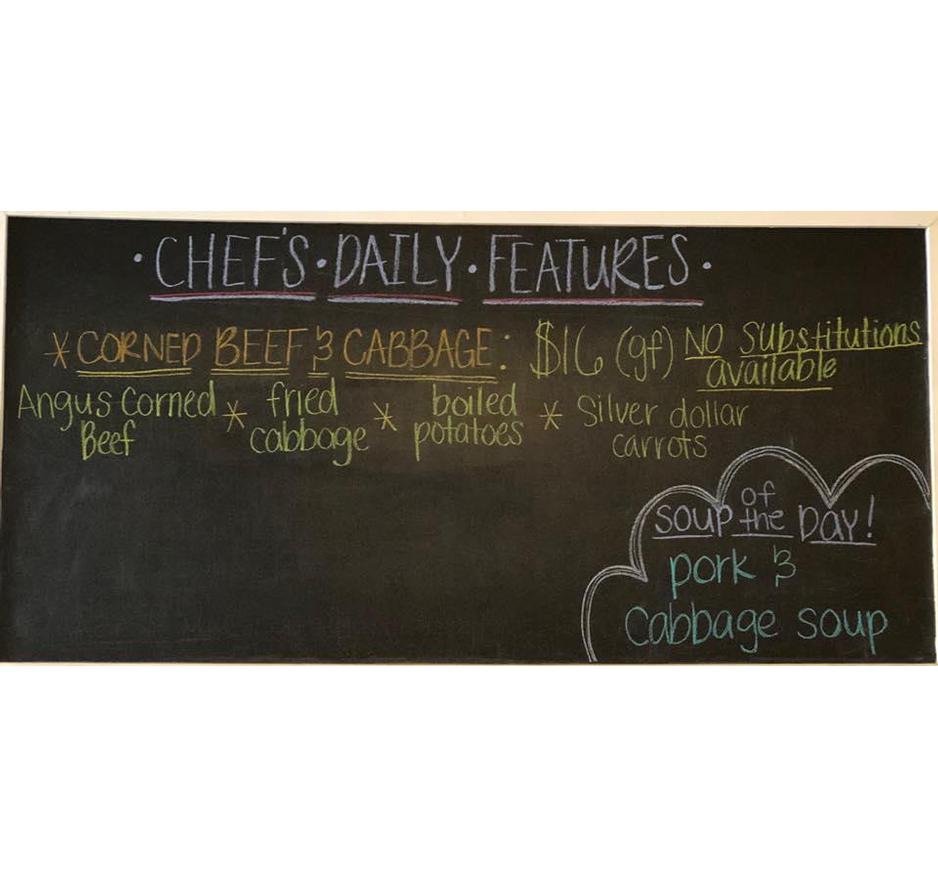 · CHEF'S · DAILY · FEATURES ·
* CORNED BEEF & CABBAGE: $16 (gf) NO Substitutions available
Angus Corned Beef * fried cabbage * boiled potatoes * Silver dollar carrots
Soup of the Day!
pork &
Cabbage soup